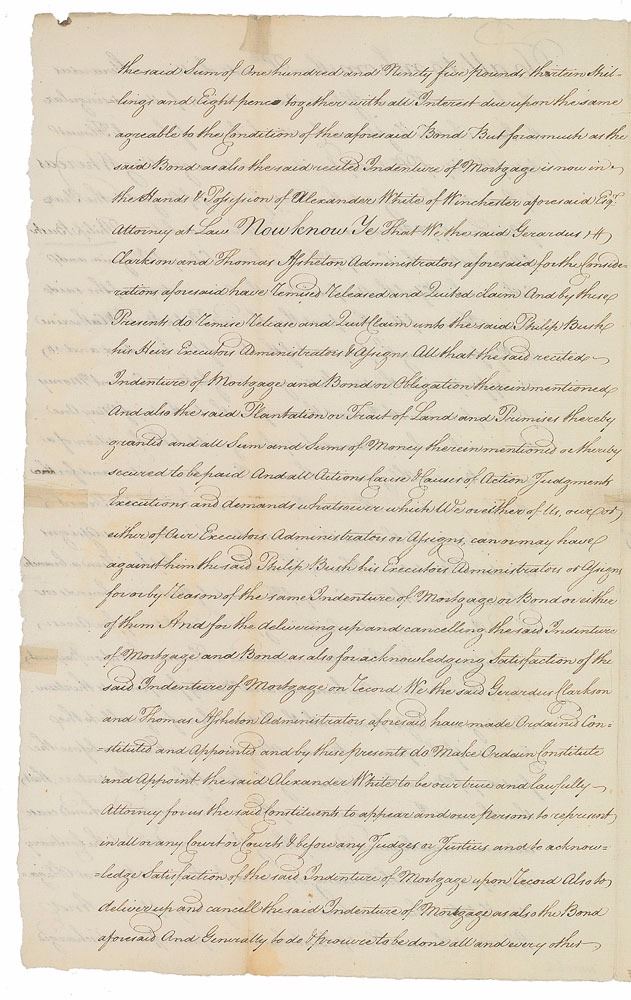 the said Sum of One hundred and Ninety five pounds thirtein Shil-
lings and Eight pence together with all Interest due upon the same
agreable to the Condition of the aforesaid Bond But forasmuch as the
said Bond as also the said recited Indenture of Mortgage is now in
the Hands & Possession of Alexander White of Winchester aforesaid Esqr
Attorney at Law Now know Ye That We the said Gerardus
Clarkson and Thomas Assheton Administrators aforesaid for the Conside-
rations aforesaid have remised released and Quited claim And by these
Presents do remise release and Quit Claim unto the said Philip Bush
his Heirs Executors Administrators & Assigns All that the said recited
Indenture of Mortgage and Bond or Obligation therein mentioned
And also the said Plantation or Tract of Land and Premises thereby
granted and all Sum and Sums of Money therein mentioned or thereby
secured to be paid And all Actions Cause & Causes of Action Judgments
Executions and demands whatsoever which We or either of Us, our or
either of Our Executors Administrators or Assigns, can or may have
against him the said Philip Bush his Executors Administrators or Assigns
for or by reason of the same Indenture of Mortgage or Bond or either
of them And for the delivering up and cancelling the said Indenture
of Mortgage and Bond as also for acknowledging Satisfaction of the
said Indenture of Mortgage on record We the said Gerardus Clarkson
and Thomas Assheton Administrators aforesaid have made Ordained Con=
=stituted and Appointed and by these presents do Make Ordain Constitute
and Appoint the said Alexander White to be our true and lawfully
Attorney for us the said Constituents to appear and our Persons to represent
in all or any Court or Courts & before any Judges or Justices and to acknow=
=ledge Satisfaction of the said Indenture of Mortgage upon record Also to
deliver up and cancell the said Indenture of Mortgage as also the Bond
aforesaid And Generally to do & procure to be done all and every other